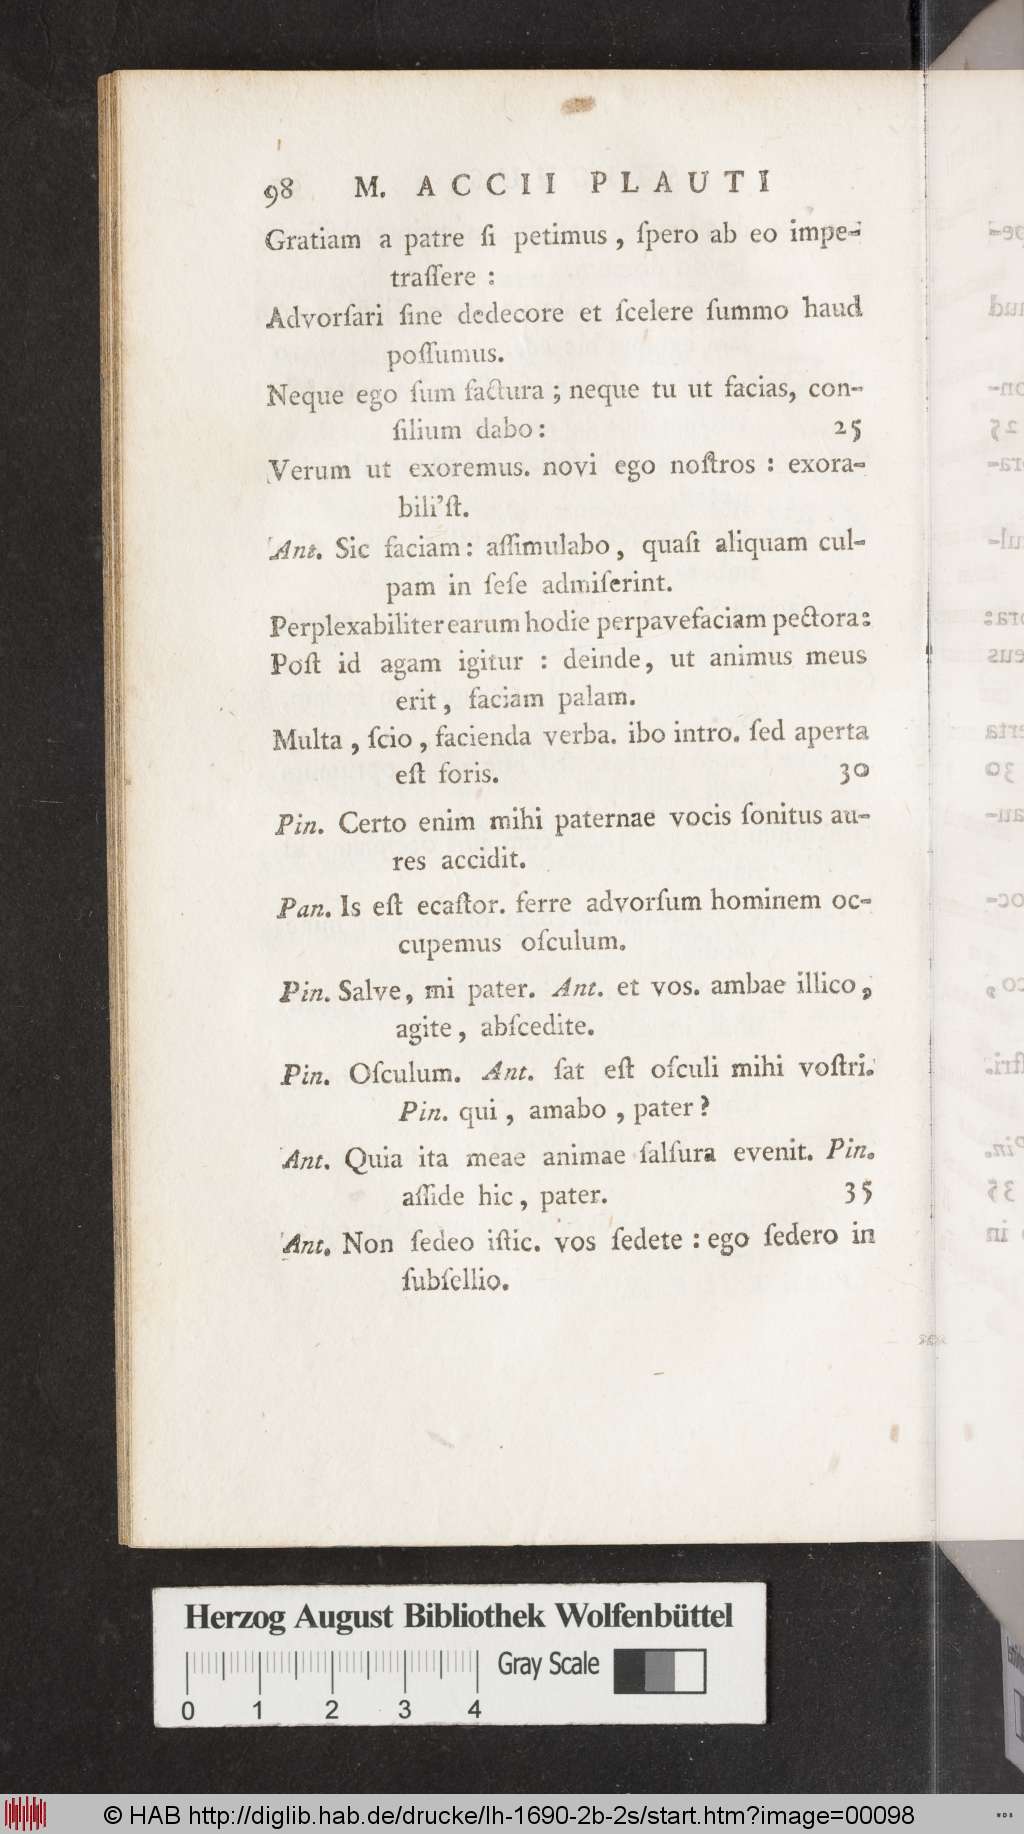 98 M. ACCII PLAUTI
Gratiam a patre ſi petimus, ſpero ab eo impe-
traſſere :
Advorſari ſine dedecore et ſcelere ſummo haud
poſſumus.
Neque ego ſum factura ; neque tu ut facias, con-
ſilium dabo : 25
Verum ut exoremus. novi ego noſtros : exora-
bili'ſt.
Ant. Sic faciam : aſſimulabo, quaſi aliquam cul-
pam in ſeſe admiſerint.
Perplexabiliter earum hodie perpavefaciam pectora :
Poſt id agam igitur : deinde, ut animus meus
erit, faciam palam.
Multa, ſcio, facienda verba. ibo intro. ſed aperta
eſt foris. 30
Pin. Certo enim mihi paternae vocis ſonitus au-
res accidit.
Pan. Is eſt ecaſtor. ferre advorſum hominem oc-
cupemus oſculum.
Pin. Salve, mi pater. Ant. et vos. ambae illico,
agite, abſcedite.
Pin. Oſculum. Ant. ſat eſt oſculi mihi voſtri.
Pin. qui, amabo, pater ?
Ant. Quia ita meae animae ſalſura evenit. Pin.
aſſide hic, pater. 35
Ant. Non ſedeo iſtic. vos ſedete : ego ſedero in
ſubſellio.
Herzog August Bibliothek Wolfenbüttel
Gray Scale
0 1 2 3 4
© HAB http://diglib.hab.de/drucke/lh-1690-2b-2s/start.htm?image=00098